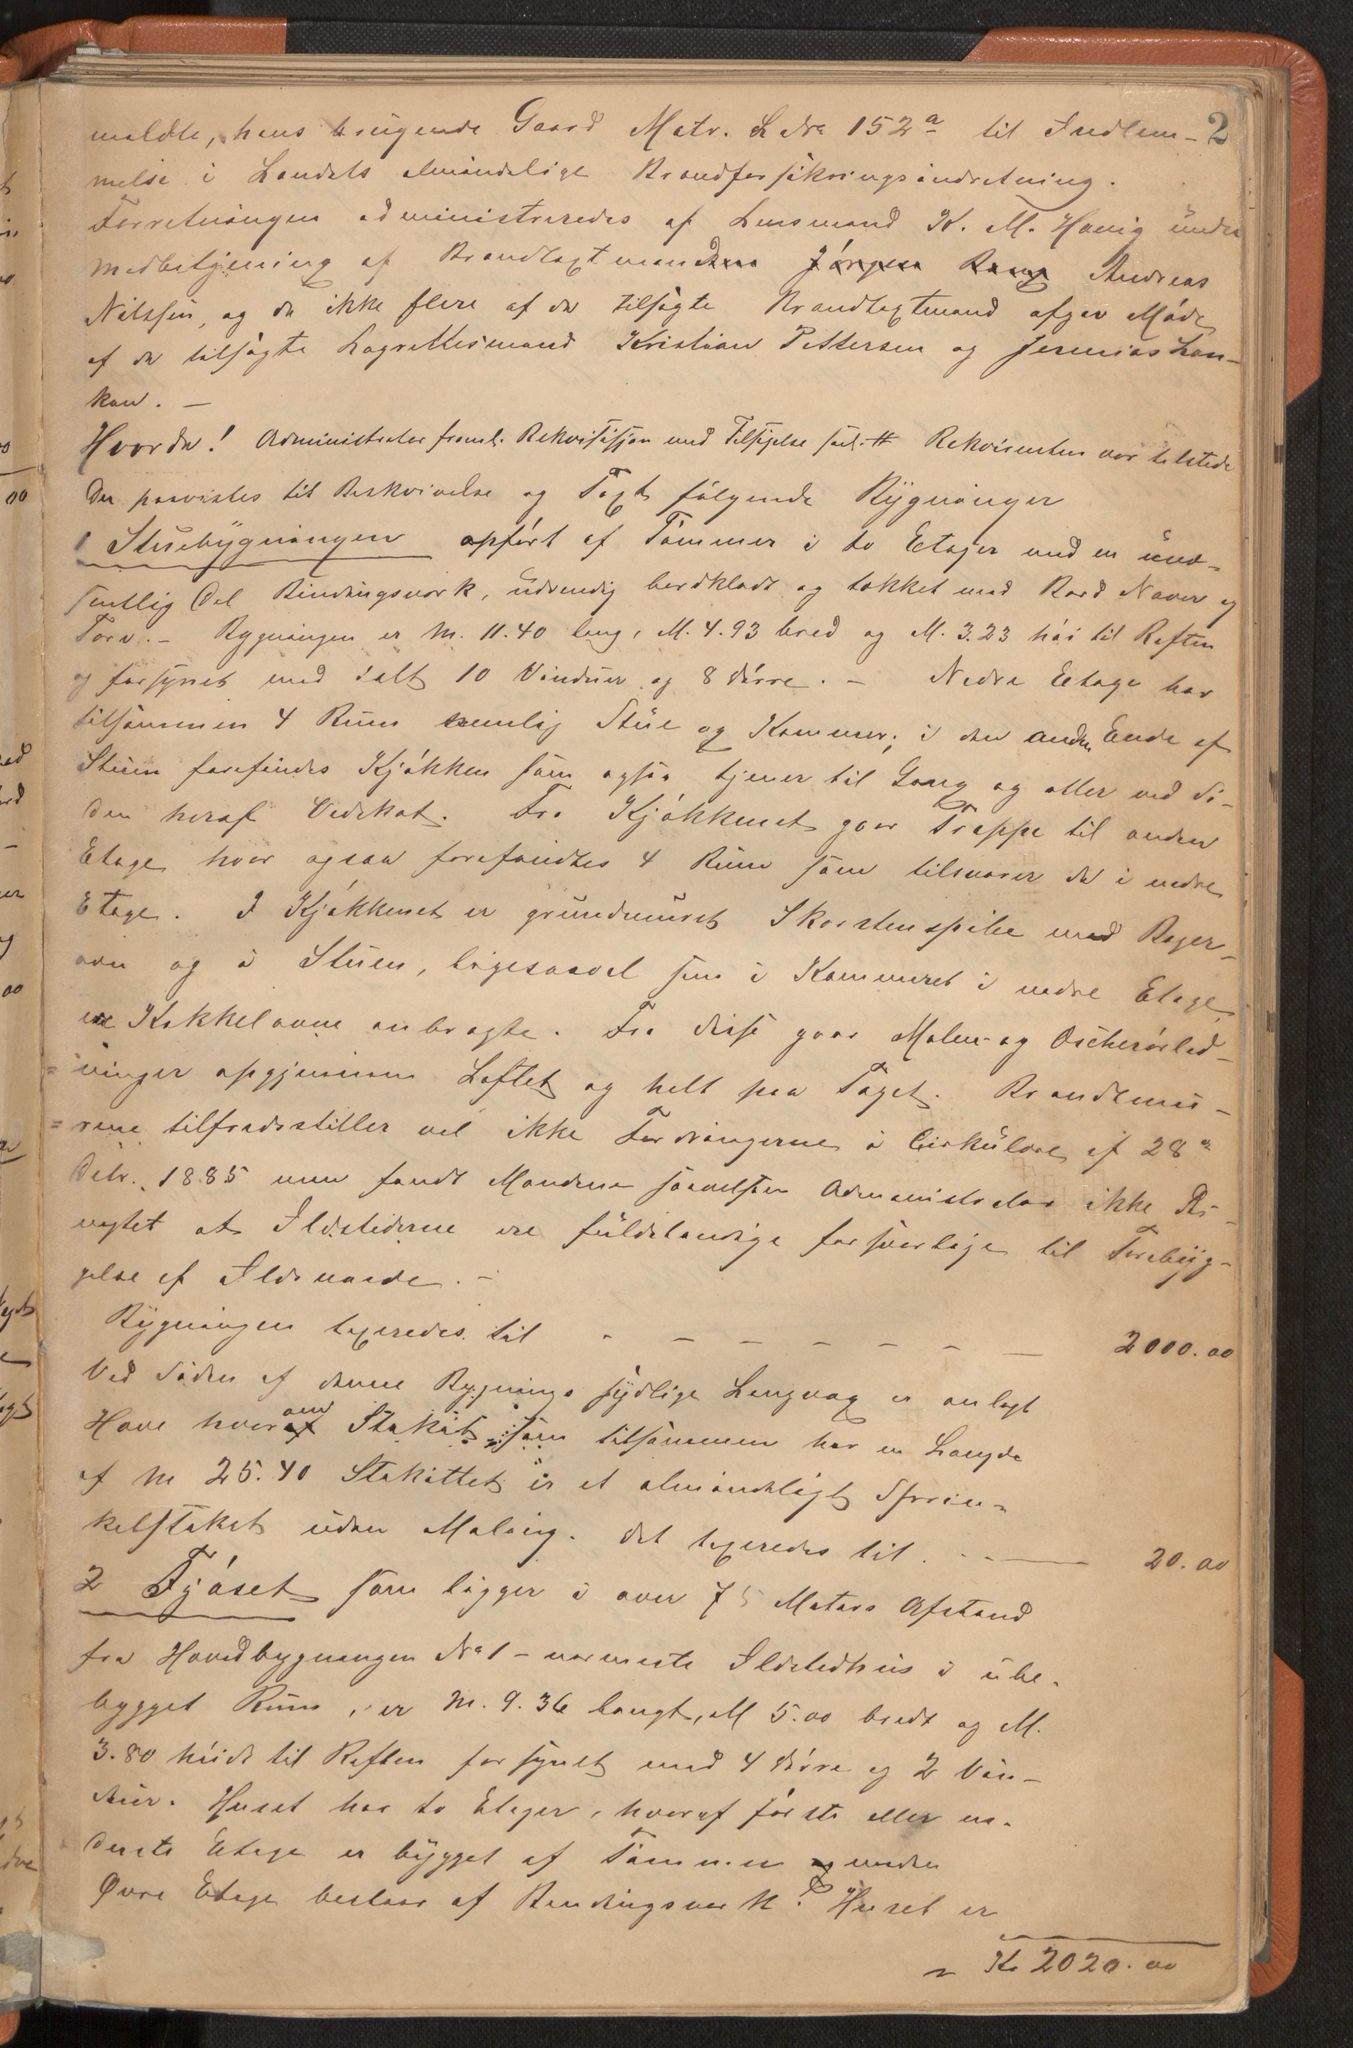 2
meldte, hans brugende Gaard Matr. L No 152a til Indlem-
melse i Landets almindelige Brandforsikringsindretning.
Forretningen administreredes af Lensmand K. M. Havig under
Medbetjening af Brandtaxtmændene Jörgen Andreas
Nilssen, og da ikke flere af de tilsagte Brandtaxtmænd afgav Møde
af de tilsagte Lagrettesmænd Kristian Pettersen og Jeremias Lon-
kan. —
Hvorda! Administrator freml. Rekvisisjon med Tilsigelse Rekvirenten var tilstede
Der paavistes til Beskrivelse og Taxt følgende Bygninger
1 Stuebygningen opført af Tømmer i to Etager med en uvæ-
sentlig Del Bindingsverk, udvendig bordklædt og tækket med Bord Næver og
Torv. — Bygningen er M. 11.40 lang, M. 4.93 bred og M. 3.23 høi til Raften
og forsynet med ialt 10 Vinduer og 8 Dörre. — Nedre Etage har
tilsammen 4 Rum nemlig Stue og Kammer; i den anden Ende af
Stuen forefindes Kjøkken som ogsaa tjener til Gang og eller ved Si-
den heraf Vedskot. Fra Kjøkkenet gaar Trappe til anden
Etage hvor ogsaa forefandtes 4 Rum som tilsvarer de i nedre
Etage. I Kjøkkenet er grundmuret Skorstenspibe med Bager-
ovn og i Stuen, ligesaavel som i Kammeret i nedre Etage
ere Kakkelovne anbragte. Fra disse gaar Malm- og Oscherörled-
= ninger opgjennem Loftet og helt paa Taget. Brandtmu-
= rene tilfredsstiller vel ikke Fordringerne i Cirkulære af 28de
Debr. 1885 men fandt Mændene saavelsom Administrator ikke
at Ildstederne ere fuldstændige forsvarlige til Forebyg-
gelse af Ildsvaade. —
Bygningen taxeredes til — — — — — — — 2000.00
Ved Siden af denne Bygnings sydlige Langvæg er anlagt
Have hvorom Stakit som tilsammen har en Længde
af M 25.40 Stakittet er et almindeligt Sprin-
kelstakit uden Maling. Det taxeredes til. — 20.00
2 Fjøset som ligger i over 75 Meters Afstand
fra Hovedbygningen No 1 — nærmeste Ildstedhus i ube-
bygget Rum, er M. 9.36 langt, M 5.00 bredt og M.
3.80 høidt til Raften forsynet med 4 Dörre og 2 Vin-
duer. Huset har to Etager, hvoraf første eller un-
derste Etage er bygget af Tømmer medens
Øvre Etage bestaar af Bindingsverk. Huset er
Kr 2020.00